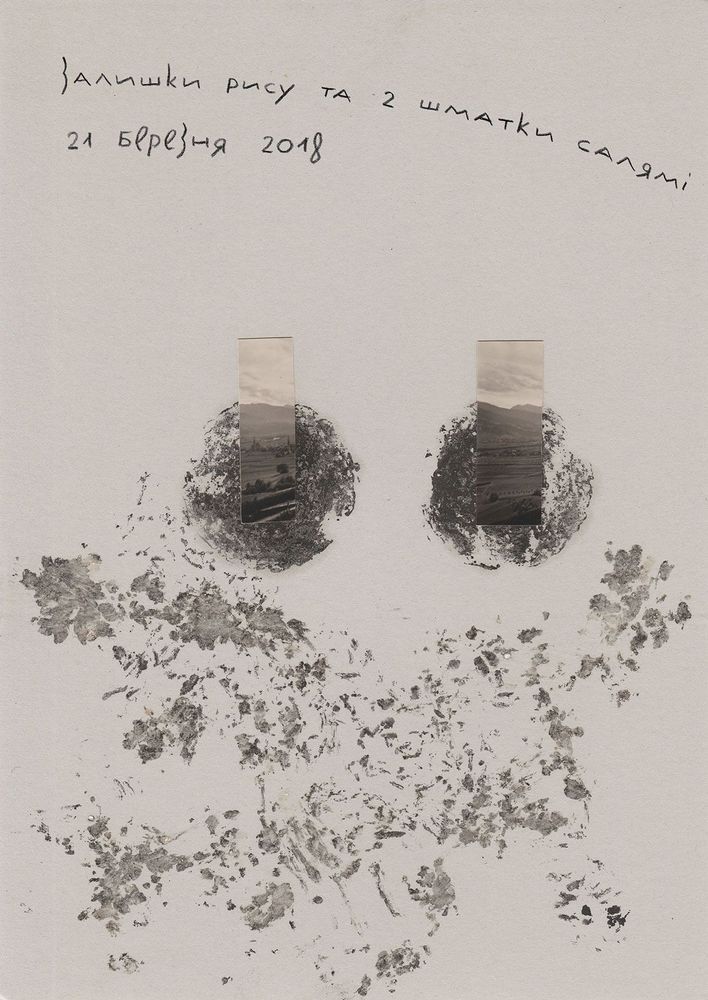 Залишки рису та 2 шматки салямі
21 березня 2018